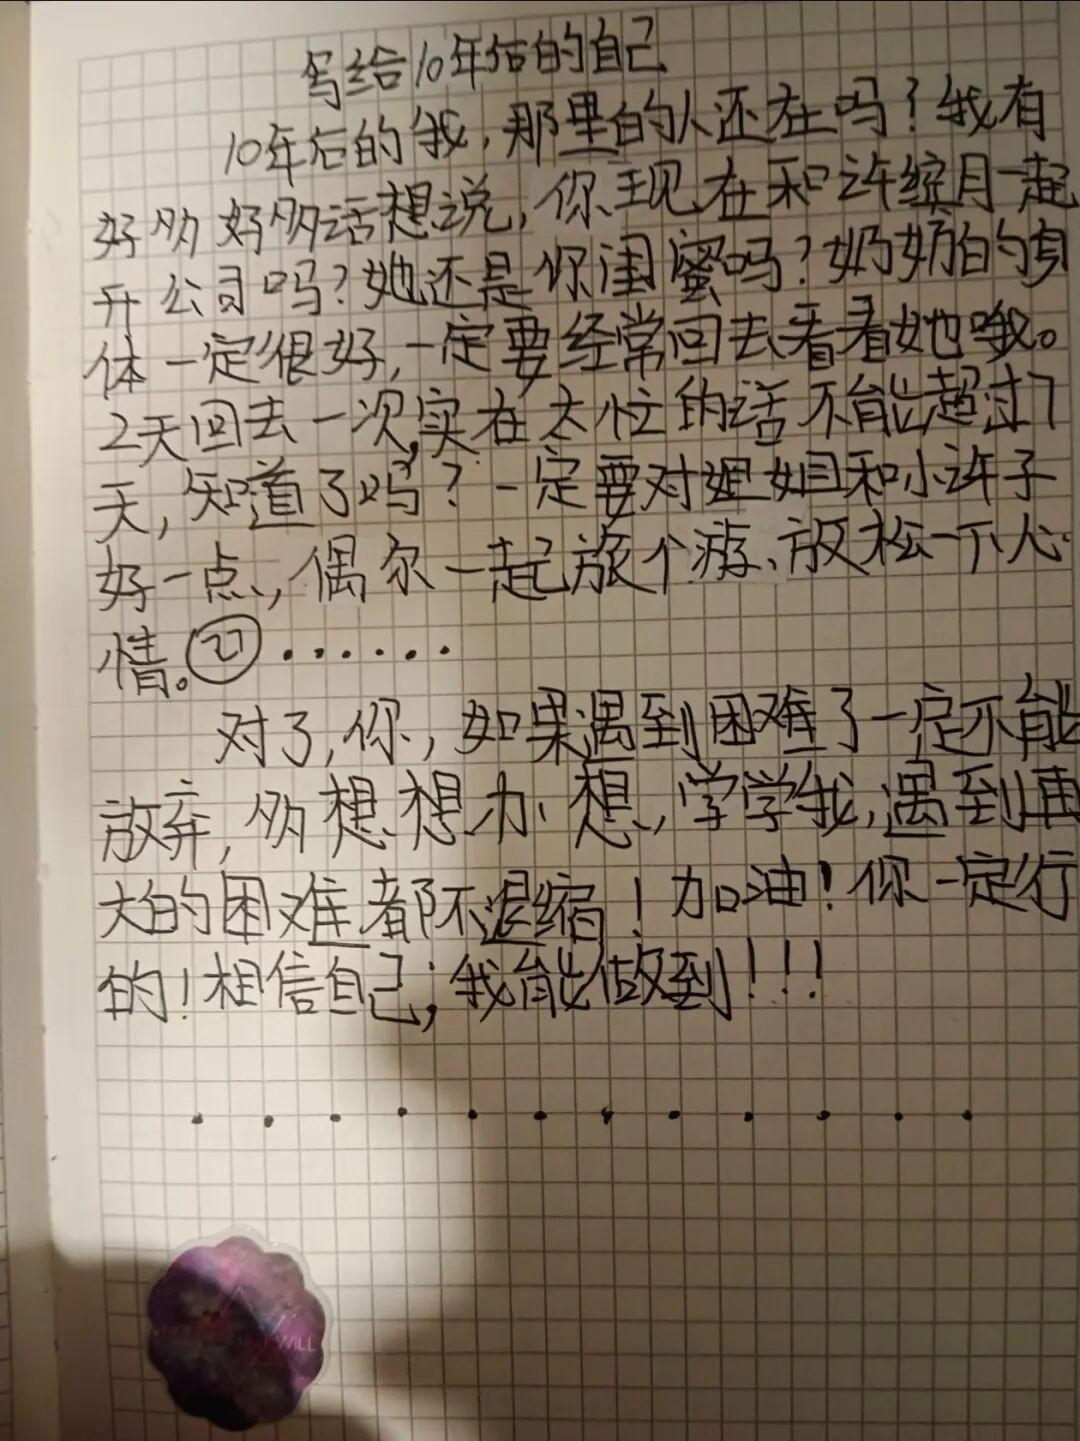 写给10年后的自己
10年后的我,那里的人还在吗?我有
好多好多话想说,你现在和许绽月一起
开公司吗?她还是你闺蜜吗?奶奶的身
体一定很好,一定要经常回去看看她哦。
2天回去一次,实在太忙的话不能超过7
天,知道了吗?一定要对姐姐和小许子
好一点,偶尔一起旅个游、放松一下心
情。……
对了,你,如果遇到困难了一定不能
放弃,多想想办想,学学我,遇到再
大的困难都不退缩!加油!你一定行
的!相信自己;我能做到!!!
WILL